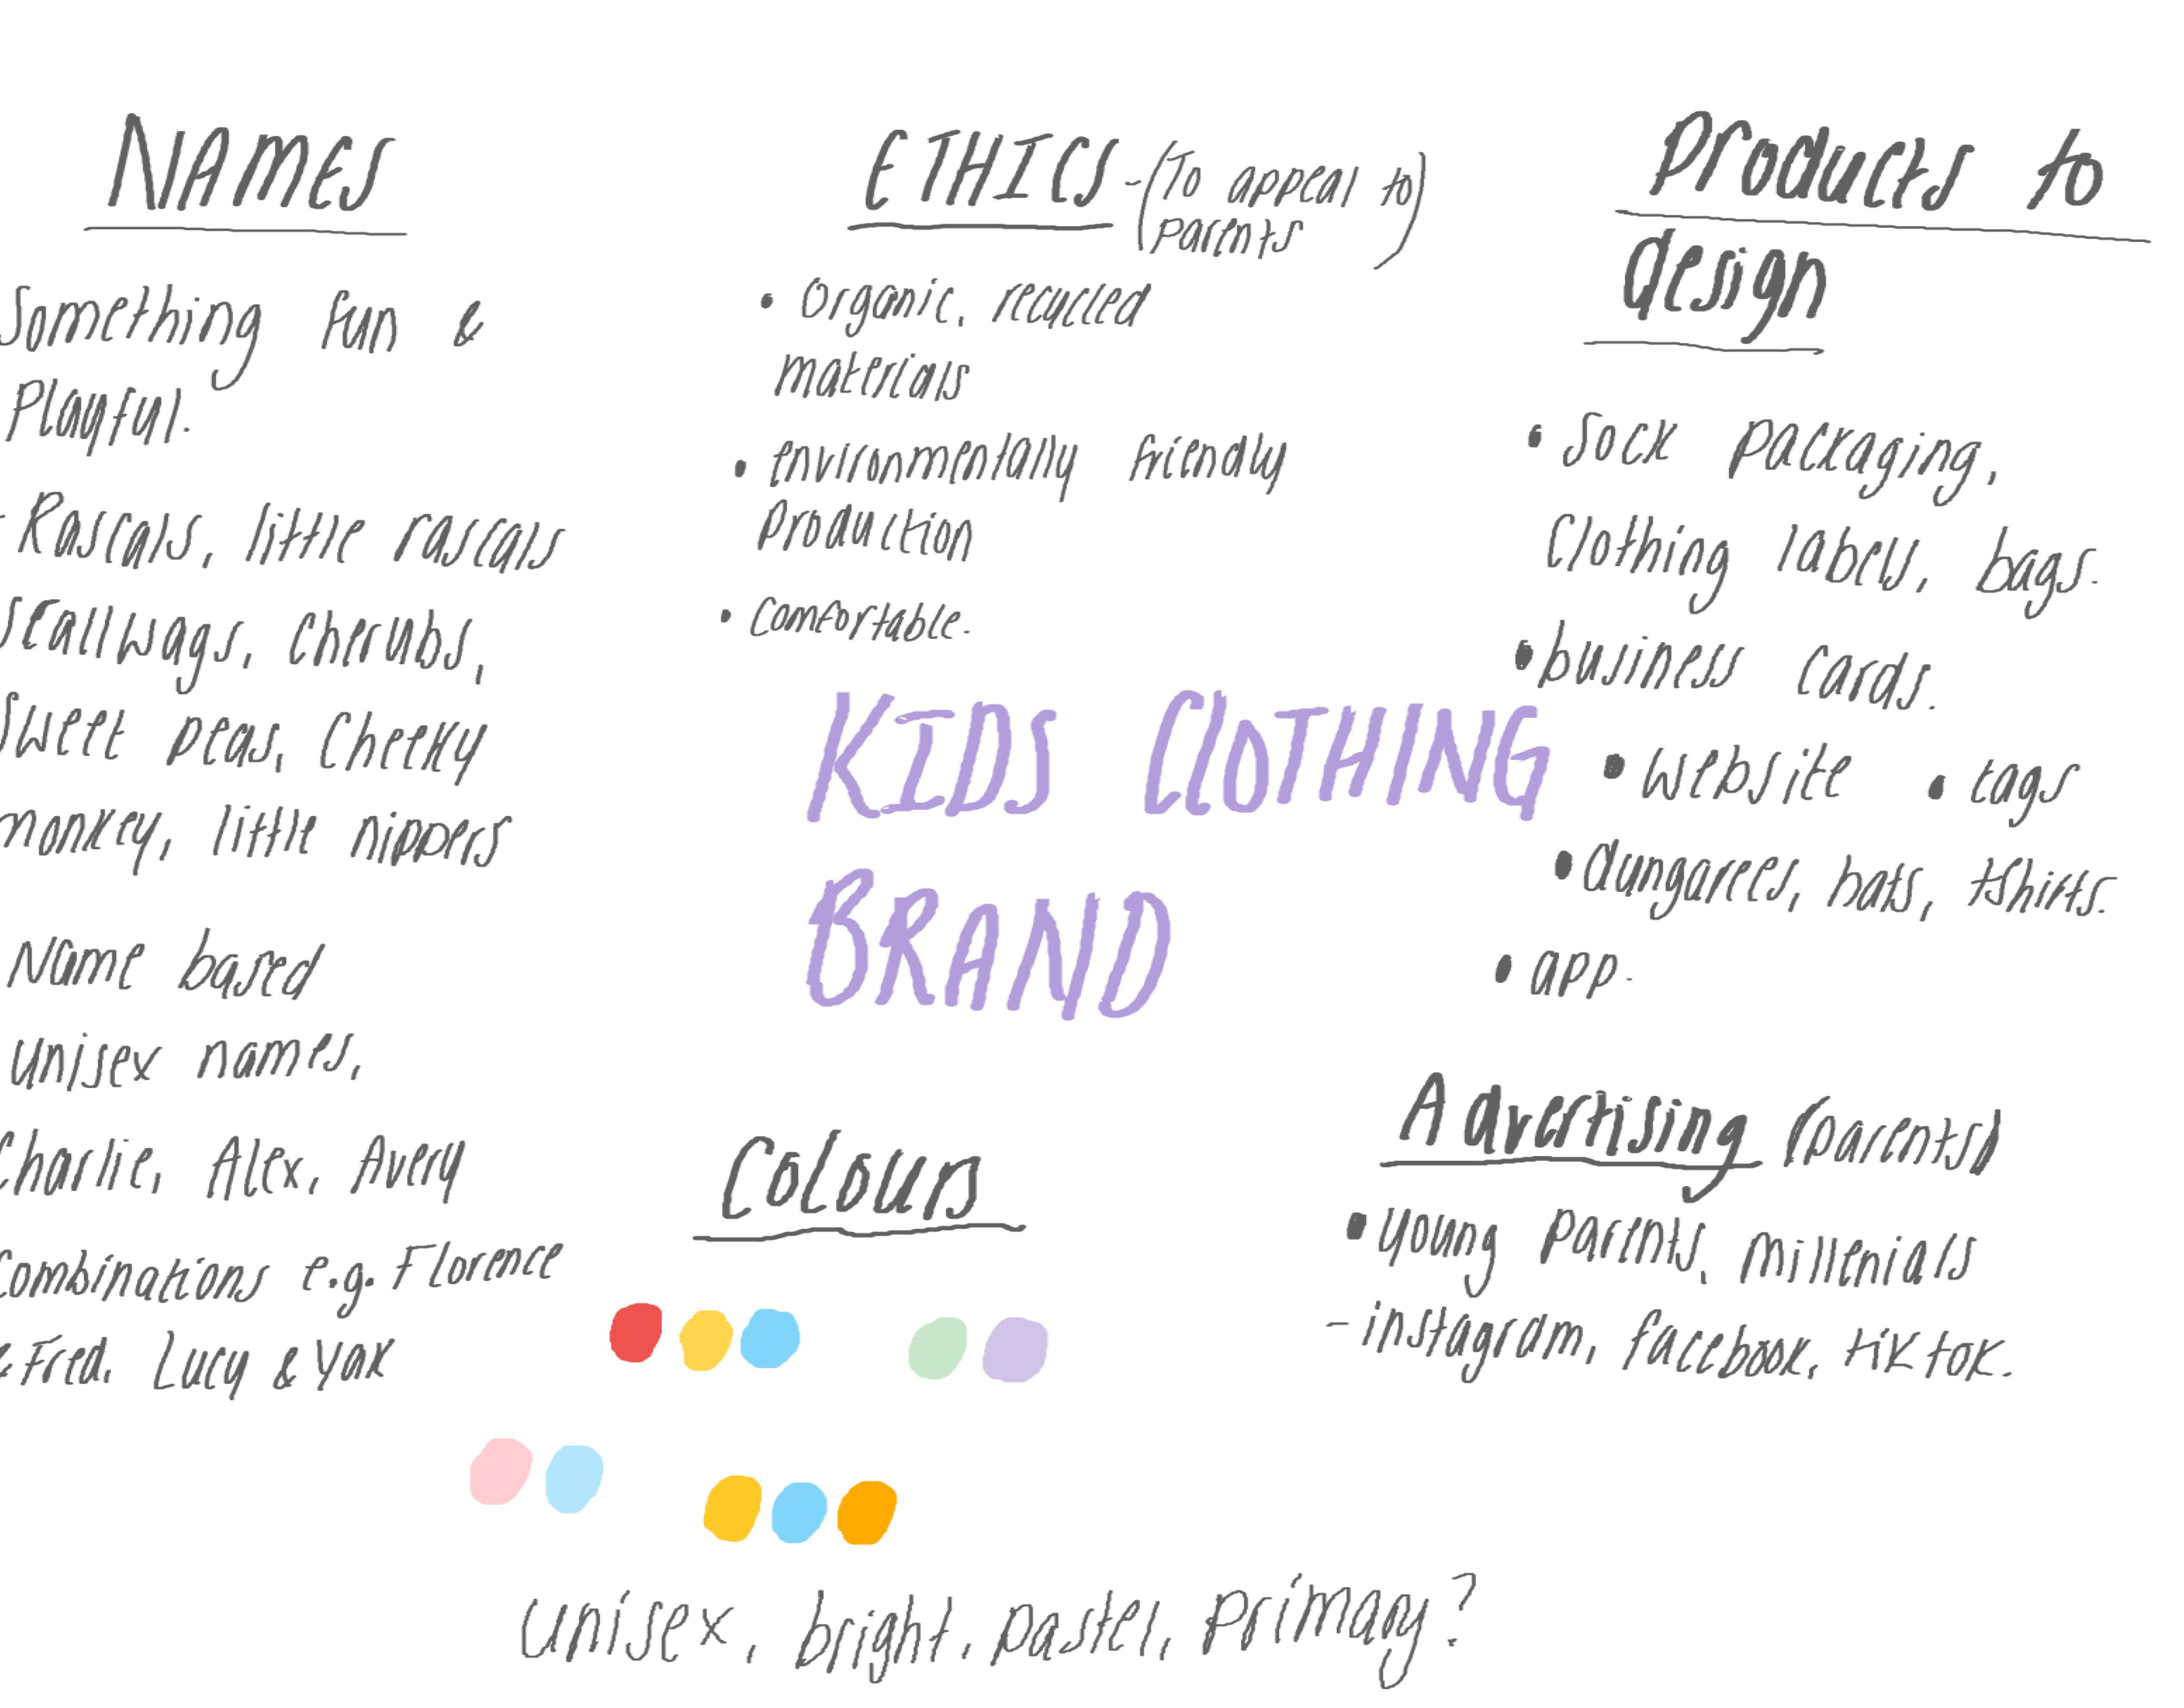 NAMES
Something fun &
Playful.
- Rascals, little rascals
Scallwags, Cherubs,
Sweet peas, Cheeky
monkey, little nippers
Name based
unisex names,
Charlie, Alex, Avery
Combinations e.g. Florence
& Fred, Lucy & Yak
ETHICS - (To appeal to
parents)
• Organic, recycled
materials
• environmentally friendly
production
• comfortable.
KIDS CLOTHING
BRAND
Colours
unisex, bright, pastel, primary?
Products to
design
• Sock packaging,
Clothing labels, bags.
• business cards.
• website • tags
• dungarees, hats, tshirts.
• app.
Advertising (parents)
• young parents, millenials
- instagram, facebook, tiktok.